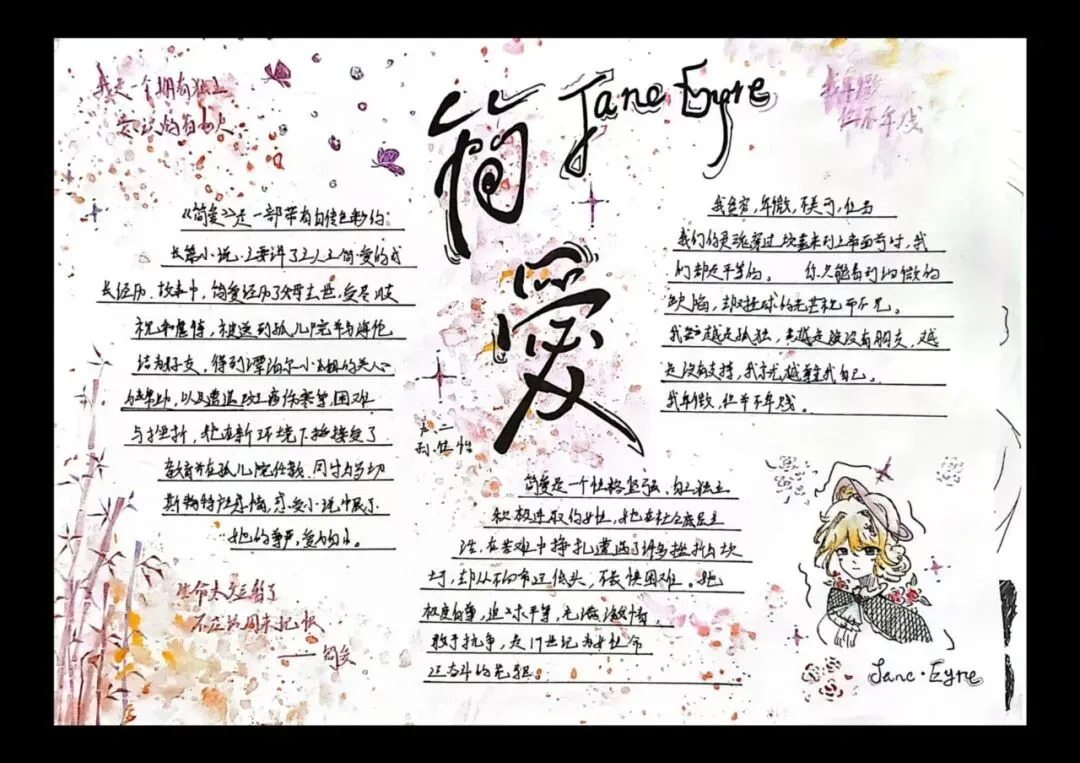 我是一个拥有独立
意识的自由人
简爱
Jane Eyre
我卑微
但不卑贱
《简爱》是一部带有自传色彩的
长篇小说,主要讲了主人公简·爱的成
长经历,故事中,简爱经历了父母去世,受尽歧
视和虐待,被送到孤儿院并与海伦
结为好友,得到谭泊尔小姐的关心
以及遭遇 病伤寒等,困难
与挫折,她在新环境下 接受了
教育并在孤儿院任教,同时与罗切
斯特 小说 展了
她的尊严,爱
生命太短暂了
不应该用来记恨
——简爱
我贫穷,卑微,不美,但当
我们的灵魂穿过坟墓来到上帝面前时,我
们都是平等的。 你只能看到细微的
缺陷,却对 球的光芒视而不见。
我越是孤独,越是没有朋友,越
是没有支持,我就越尊重我自己。
我卑微,但并不卑贱。
简爱是一个性格坚强,独立
积极进取的女性,她在社会底层生
活,在苦难中挣扎遭遇了许多挫折与坎
坷,却从不向命运低头,不畏惧困难。她
极度自尊,追求平等,充满激情
敢于抗争,是19世纪为女性命
运奋斗的先驱。
Jane·Eyre